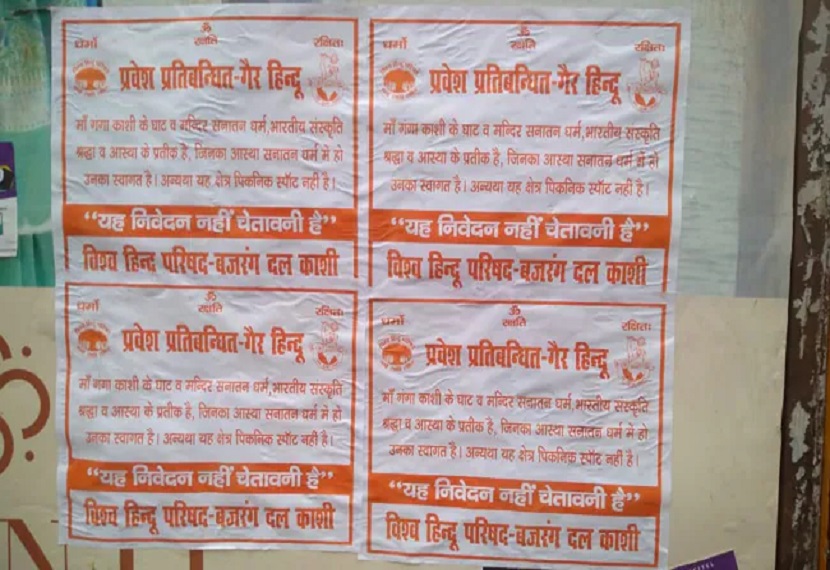 ॐ
धर्मो रक्षति रक्षितः
प्रवेश प्रतिबन्धित-गैर हिन्दू
माँ गंगा काशी के घाट व मन्दिर सनातन धर्म,भारतीय संस्कृति
श्रद्धा व आस्था के प्रतीक है, जिनका आस्था सनातन धर्म में हो
उनका स्वागत है। अन्यथा यह क्षेत्र पिकनिक स्पॉट नही है।
“यह निवेदन नहीं चेतावनी है”
विश्व हिन्दू परिषद-बजरंग दल काशी
ॐ
धर्मो रक्षति रक्षितः
प्रवेश प्रतिबन्धित-गैर हिन्दू
माँ गंगा काशी के घाट व मन्दिर सनातन धर्म,भारतीय संस्कृति
श्रद्धा व आस्था के प्रतीक है, जिनका आस्था सनातन धर्म में हो
उनका स्वागत है। अन्यथा यह क्षेत्र पिकनिक स्पॉट नही है।
“यह निवेदन नहीं चेतावनी है”
विश्व हिन्दू परिषद-बजरंग दल काशी
ॐ
धर्मो रक्षति रक्षितः
प्रवेश प्रतिबन्धित-गैर हिन्दू
माँ गंगा काशी के घाट व मन्दिर सनातन धर्म,भारतीय संस्कृति
श्रद्धा व आस्था के प्रतीक है, जिनका आस्था सनातन धर्म में हो
उनका स्वागत है। अन्यथा यह क्षेत्र पिकनिक स्पॉट नही है।
“यह निवेदन नहीं चेतावनी है”
विश्व हिन्दू परिषद-बजरंग दल काशी
ॐ
धर्मो रक्षति रक्षितः
प्रवेश प्रतिबन्धित-गैर हिन्दू
माँ गंगा काशी के घाट व मन्दिर सनातन धर्म,भारतीय संस्कृति
श्रद्धा व आस्था के प्रतीक है, जिनका आस्था सनातन धर्म में हो
उनका स्वागत है। अन्यथा यह क्षेत्र पिकनिक स्पॉट नही है।
“यह निवेदन नहीं चेतावनी है”
विश्व हिन्दू परिषद-बजरंग दल काशी